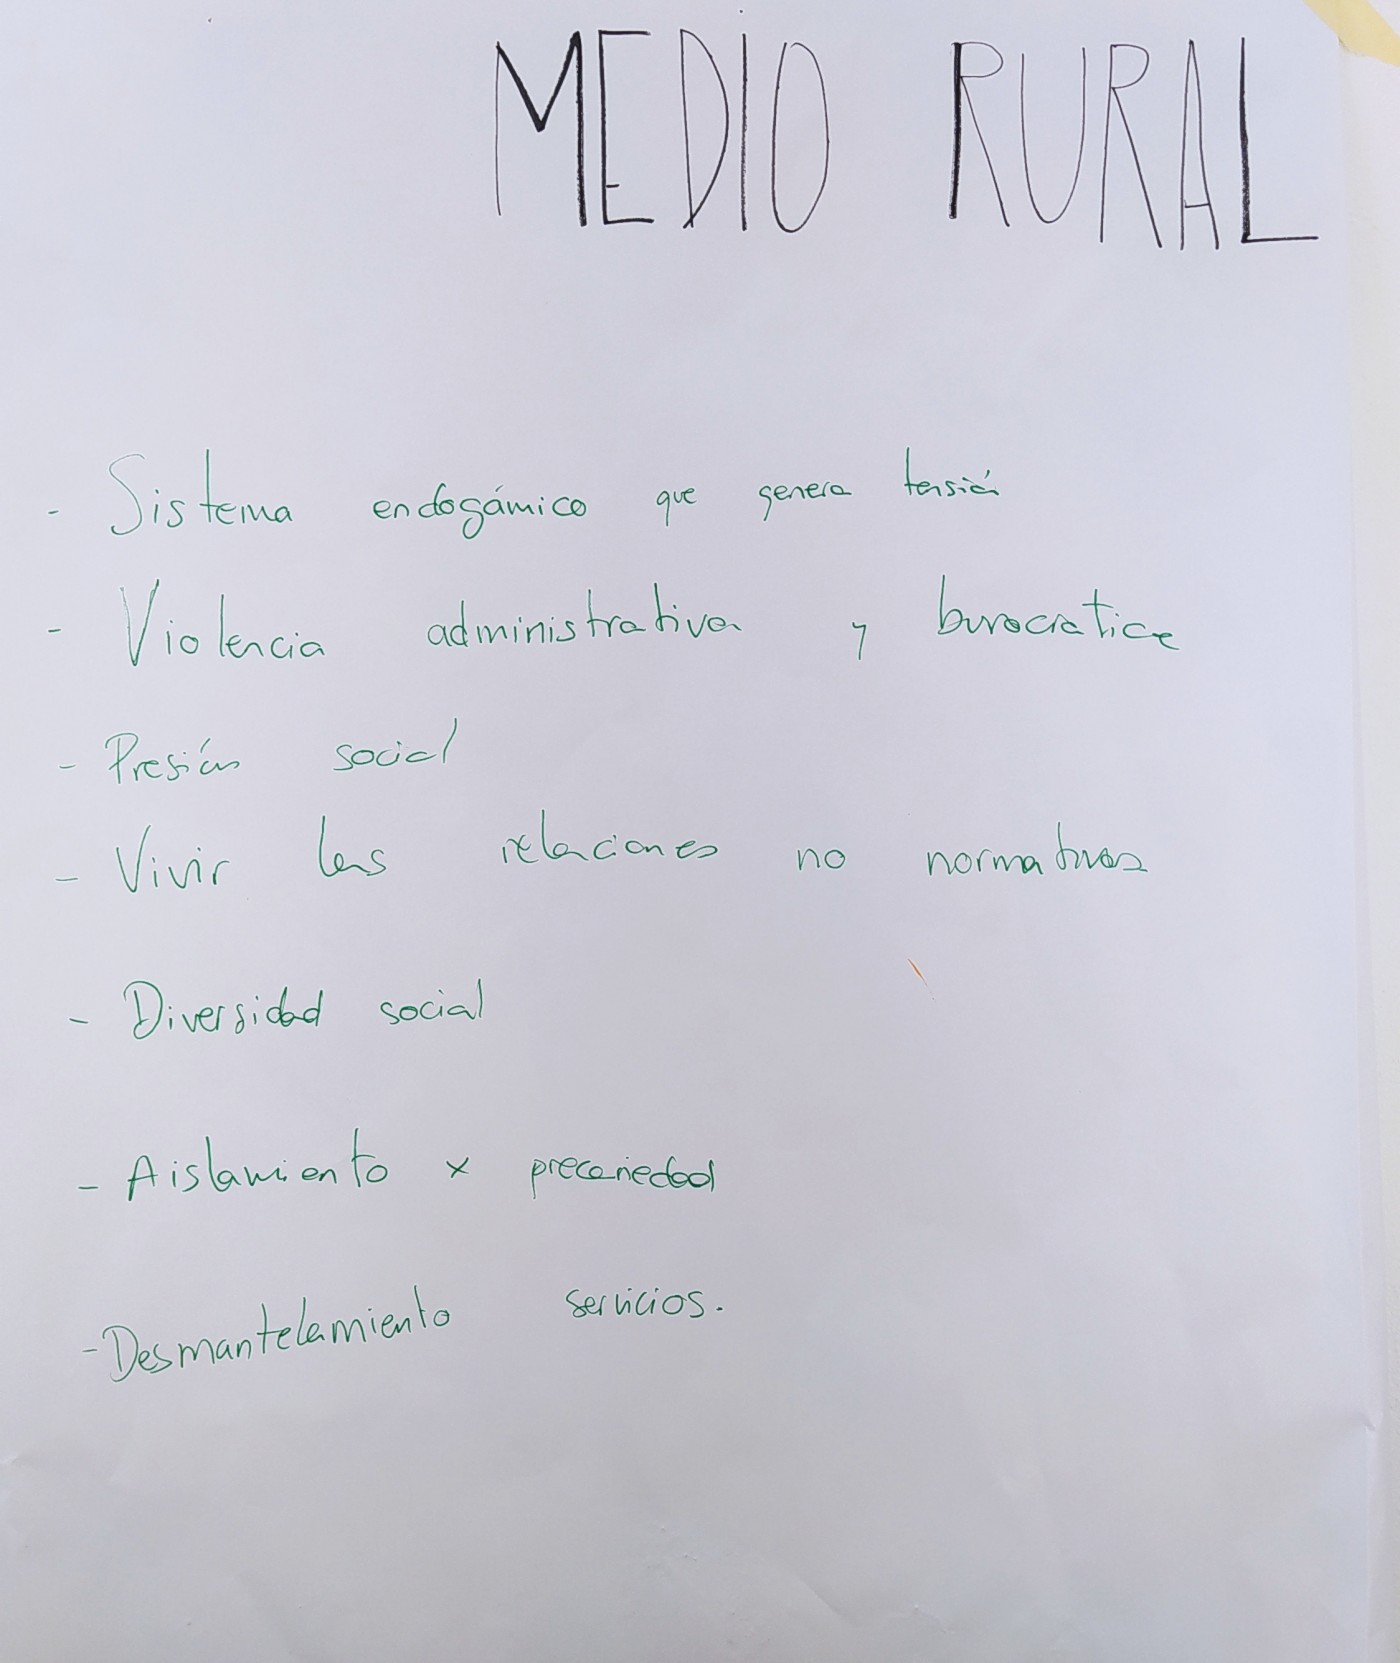 MEDIO RURAL
- Sistema endogámico que genera tensión
- Violencia administrativa y burocratica
- Presión social
- Vivir las relaciones no normativas
- Diversidad social
- Aislamiento x precariedad
- Desmantelamiento servicios.